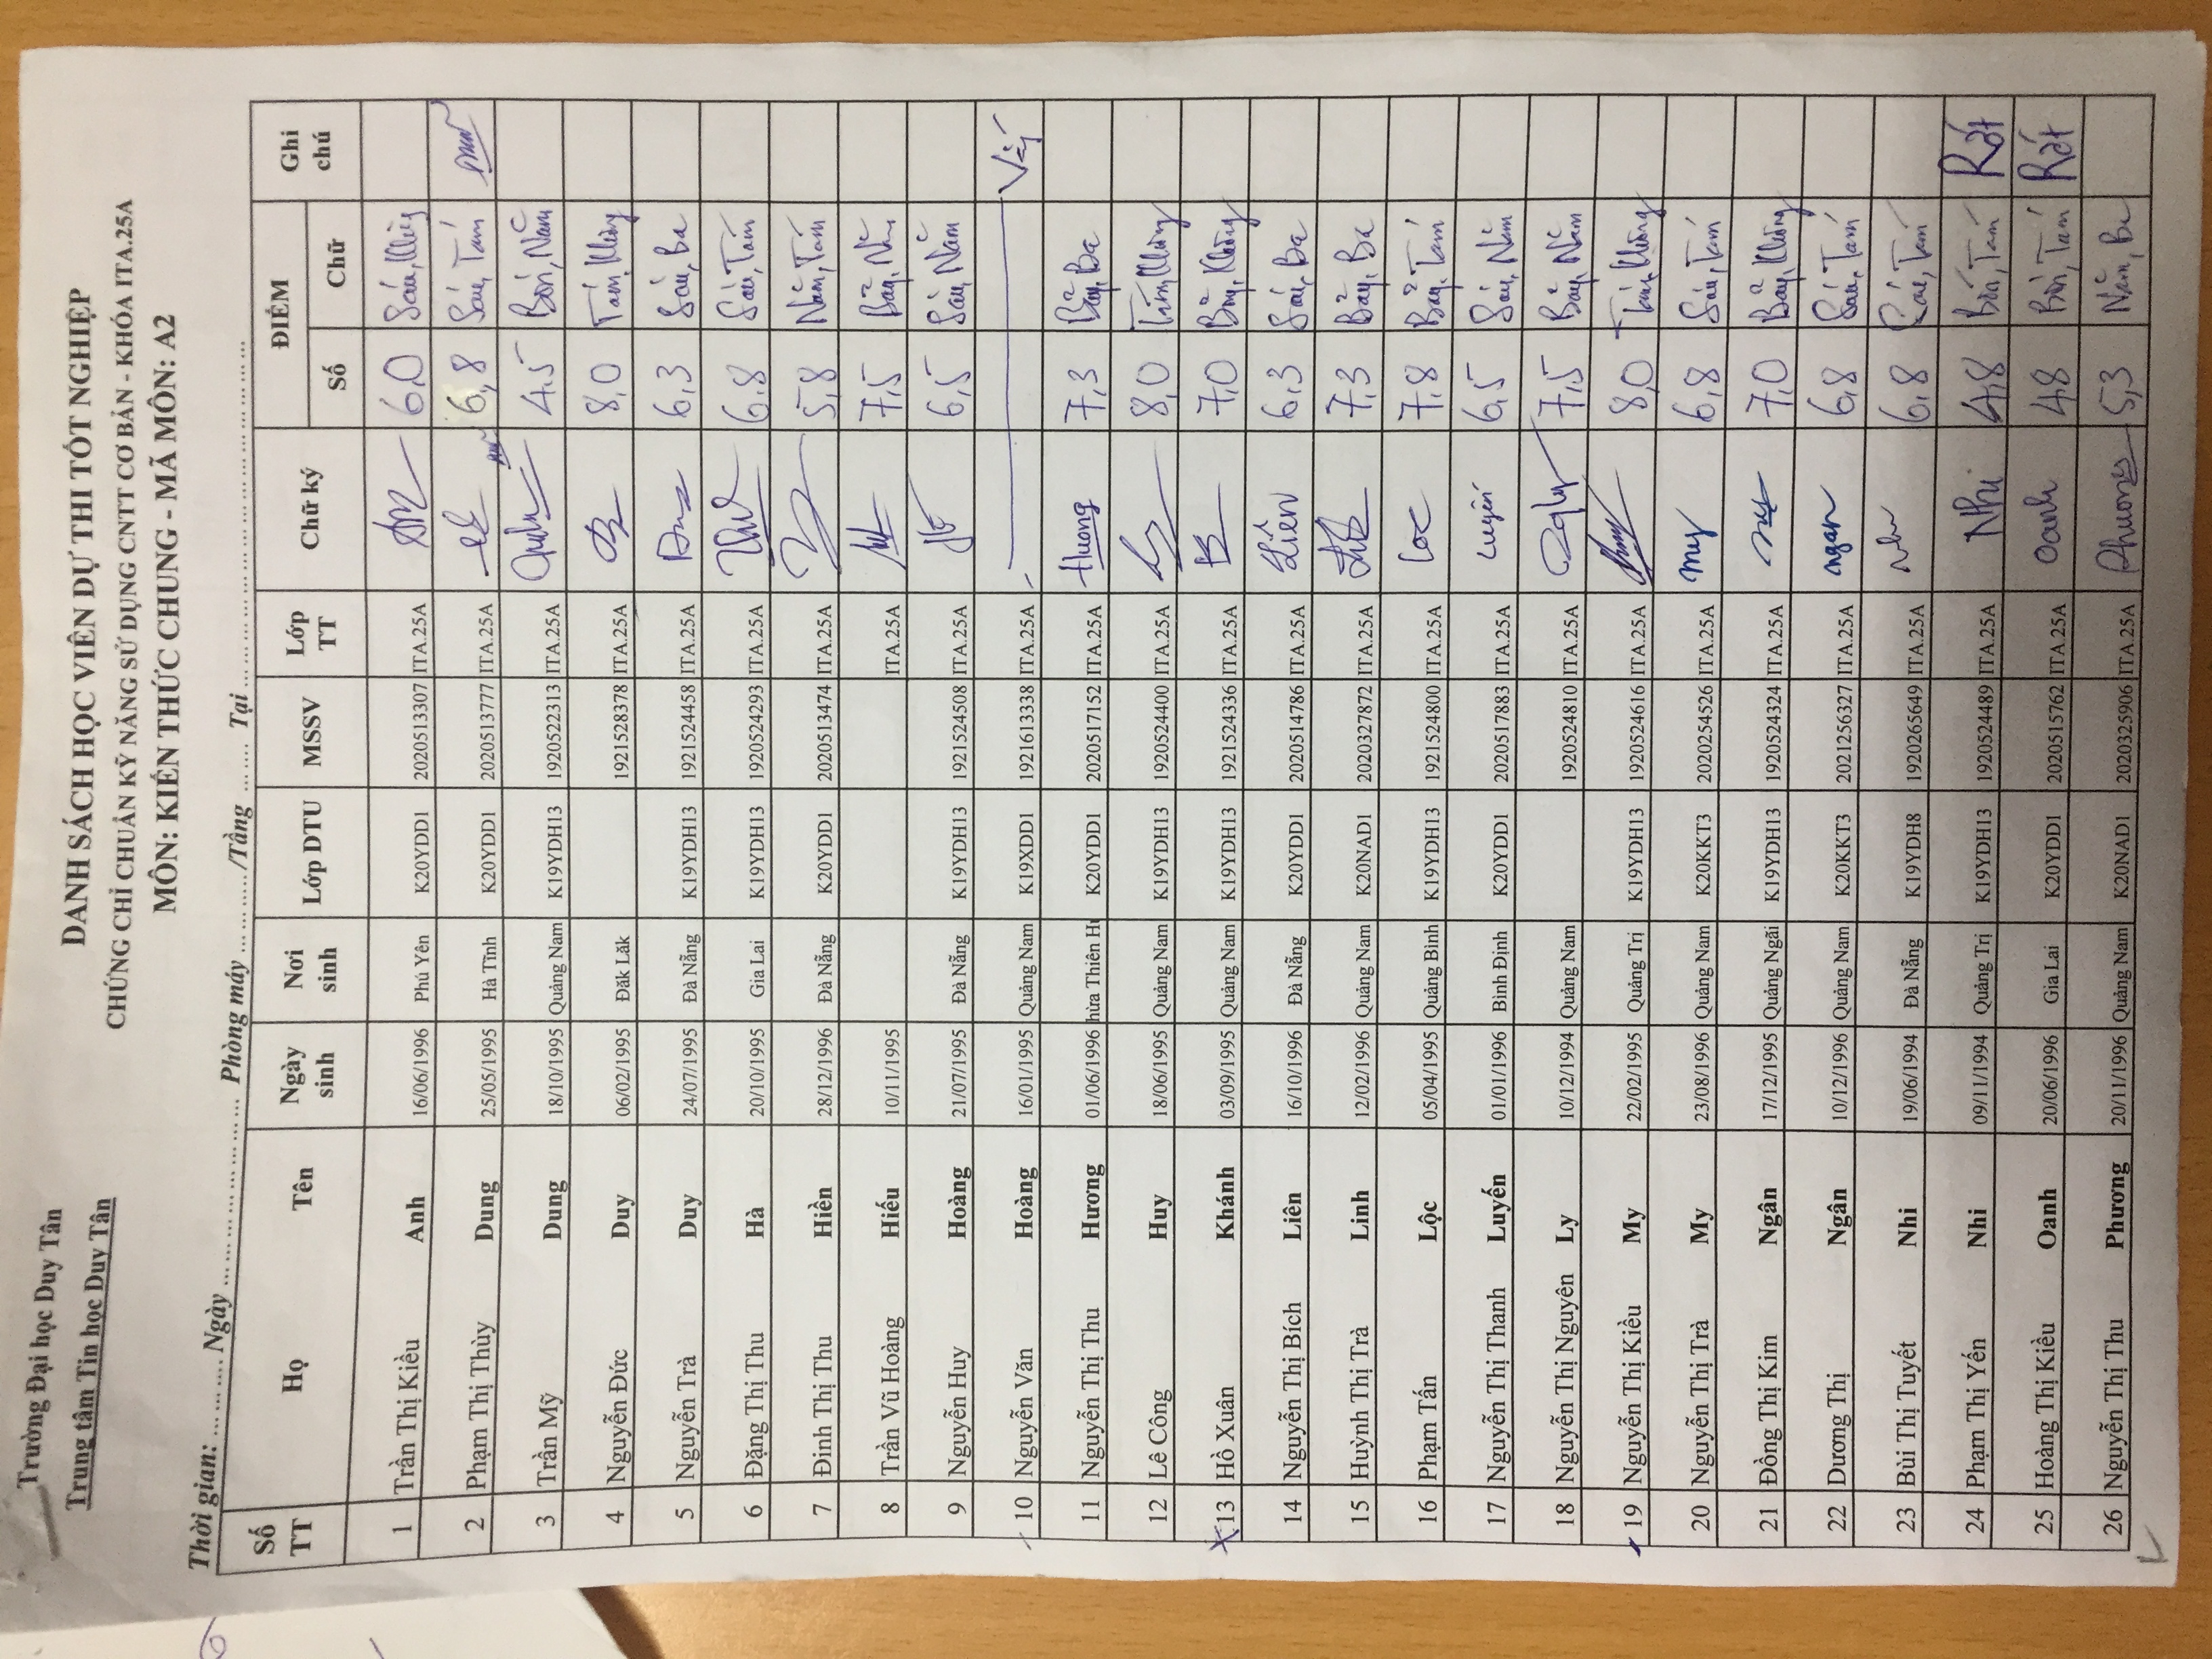 Trường Đại học Duy Tân
Trung tâm Tin học Duy Tân
DANH SÁCH HỌC VIÊN DỰ THI TỐT NGHIỆP
CHỨNG CHỈ CHUẨN KỸ NĂNG SỬ DỤNG CNTT CƠ BẢN - KHÓA ITA.25A
MÔN: KIẾN THỨC CHUNG - MÃ MÔN: A2
Thời gian: ......... Ngày ........................... Phòng máy........./Tầng ......... Tại .............................
Số TT Họ Tên Ngày sinh Nơi sinh Lớp DTU MSSV Lớp TT Chữ ký ĐIỂM Ghi chú
Số Chữ
1 Trần Thị Kiều Anh 16/06/1996 Phú Yên K20YDD1 2020513307 ITA.25A 6,0 Sáu, Không
2 Phạm Thị Thùy Dung 25/05/1995 Hà Tĩnh K20YDD1 2020513777 ITA.25A 6,8 Sáu, Tám
3 Trần Mỹ Dung 18/10/1995 Quảng Nam K19YDH13 1920522313 ITA.25A 4.5 Bốn, Năm
4 Nguyễn Đức Duy 06/02/1995 Đăk Lăk 1921528378 ITA.25A 8,0 Tám, Không
5 Nguyễn Trà Duy 24/07/1995 Đà Nẵng K19YDH13 1921524458 ITA.25A 6,3 Sáu, Ba
6 Đặng Thị Thu Hà 20/10/1995 Gia Lai K19YDH13 1920524293 ITA.25A 6,8 Sáu, Tám
7 Đinh Thị Thu Hiền 28/12/1996 Đà Nẵng K20YDD1 2020513474 ITA.25A 5,8 Năm, Tám
8 Trần Vũ Hoàng Hiếu 10/11/1995 ITA.25A 7,5 Bảy, Năm
9 Nguyễn Huy Hoàng 21/07/1995 Đà Nẵng K19YDH13 1921524508 ITA.25A 6,5 Sáu, Năm
10 Nguyễn Văn Hoàng 16/01/1995 Quảng Nam K19XDD1 1921613338 ITA.25A Vắng
11 Nguyễn Thị Thu Hương 01/06/1996 hừa Thiên Hu K20YDD1 2020517152 ITA.25A Huong 7,3 Bảy, Ba
12 Lê Công Huy 18/06/1995 Quảng Nam K19YDH13 1920524400 ITA.25A 8,0 Tám, Không
13 Hồ Xuân Khánh 03/09/1995 Quảng Nam K19YDH13 1921524336 ITA.25A 7,0 Bảy, Không
14 Nguyễn Thị Bích Liên 16/10/1996 Đà Nẵng K20YDD1 2020514786 ITA.25A Liên 6,3 Sáu, Ba
15 Huỳnh Thị Trà Linh 12/02/1996 Quảng Nam K20NAD1 2020327872 ITA.25A 7,3 Bảy, Ba
16 Phạm Tấn Lộc 05/04/1995 Quảng Bình K19YDH13 1921524800 ITA.25A Loc 7,8 Bảy, Tám
17 Nguyễn Thị Thanh Luyến 01/01/1996 Bình Định K20YDD1 2020517883 ITA.25A Luyến 6,5 Sáu, Năm
18 Nguyễn Thị Nguyên Ly 10/12/1994 Quảng Nam 1920524810 ITA.25A 7,5 Bảy, Năm
19 Nguyễn Thị Kiều My 22/02/1995 Quảng Trị K19YDH13 1920524616 ITA.25A 8,0 Tám, Không
20 Nguyễn Thị Trà My 23/08/1996 Quảng Nam K20KKT3 2020254526 ITA.25A My 6,8 Sáu, Tám
21 Đồng Thị Kim Ngân 17/12/1995 Quảng Ngãi K19YDH13 1920524324 ITA.25A 7,0 Bảy, Không
22 Dương Thị Ngân 10/12/1996 Quảng Nam K20KKT3 2021256327 ITA.25A ngan 6,8 Sáu, Tám
23 Bùi Thị Tuyết Nhi 19/06/1994 Đà Nẵng K19YDH8 1920265649 ITA.25A 6,8 Sáu, Tám
24 Phạm Thị Yến Nhi 09/11/1994 Quảng Trị K19YDH13 1920524489 ITA.25A Nhi 4,8 Bốn, Tám Rớt
25 Hoàng Thị Kiều Oanh 20/06/1996 Gia Lai K20YDD1 2020515762 ITA.25A Oanh 4,8 Bốn, Tám Rớt
26 Nguyễn Thị Thu Phương 20/11/1996 Quảng Nam K20NAD1 2020325906 ITA.25A Phuong 5,3 Năm, Ba